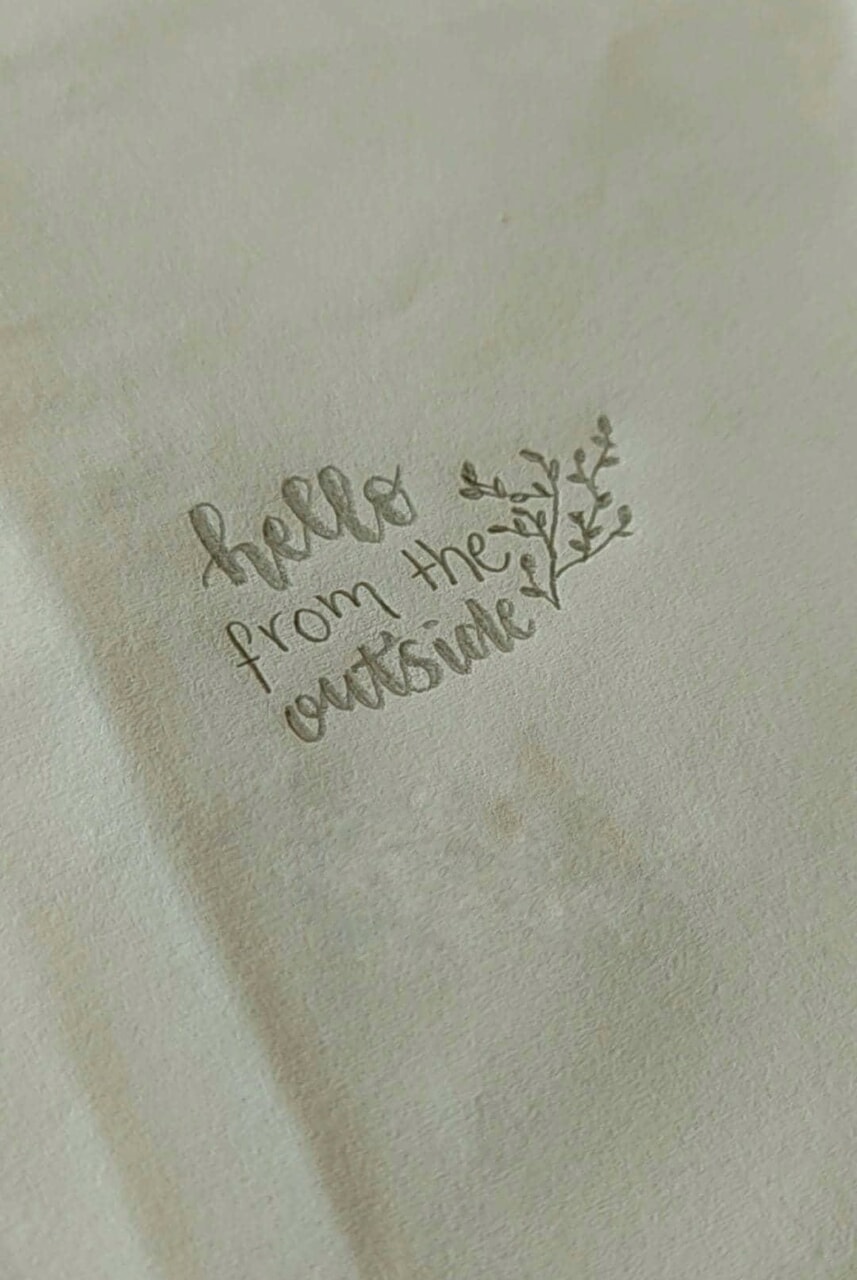 hello
from the
outside